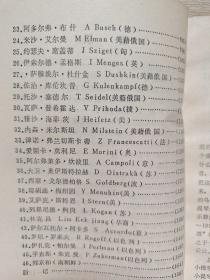 23.阿多尔弗·布什 A Busch(德)
24.米沙·艾尔曼 M Elman(美籍俄国)
25.约瑟夫·席盖蒂 J Sziget(匈)
26.伊索尔德·孟格斯 I Menges(英)
27.萨穆埃尔·杜什金 S Dushkin(美籍俄国)
28.佐治·库伦坎普 G Kulenkampf(德)
29.托沙·塞德尔 T Seidel(美籍俄国)
30.瓦萨·普希霍达 V Prihoda(捷)
31.雅沙·海菲茨 J Heifetz(美)
32.内森·米尔斯坦 N Milstein(美籍俄国)
33.捷诺·弗兰切斯卡蒂 Z Francescatti(法)
34.爱丽卡·莫利尼 E Morini(奥)
35.阿尔弗雷多·坎波里 A Campoli(意)
36.大卫·奥伊斯特拉赫 D Oistrakh(苏)
37.西蒙·戈德堡 S Goldberg(波)
38.耶胡迪·梅纽因 Y Menuhin(美)
39.艾萨克·斯特恩 I Stern(美)
40.列奥尼德·柯岗 L Kogan(苏)
41.林克昌 Lin Kek Jeong(华裔)
45.伊扎克·帕尔曼
附 记